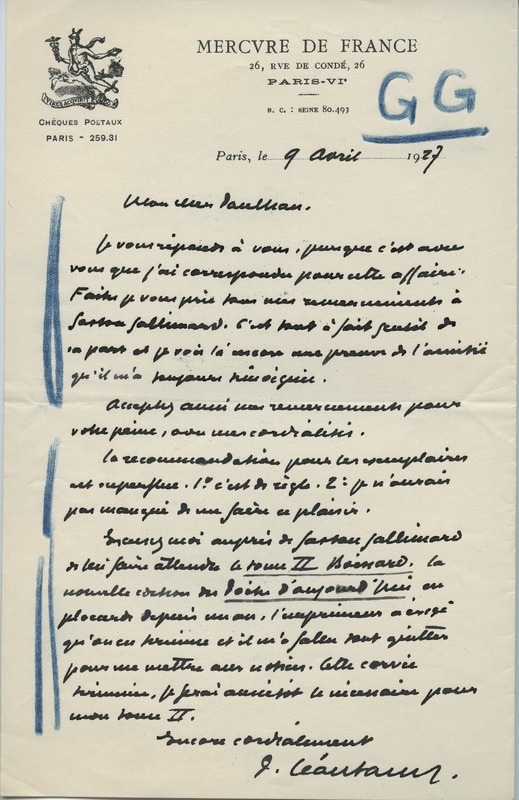 MERCVRE DE FRANCE
26, RVE DE CONDÉ, 26
PARIS-VIᵉ
R. C. : SEINE 80.493
VIRES ACQUIRIT EUNDO
CHÈQUES POSTAUX
PARIS - 259.31
GG
Paris, le 9 avril 1927
Mon cher Paulhan.
Je vous réponds à vous, puisque c'est avec
vous que j'ai correspondu pour cette affaire.
Faites je vous prie tous mes remerciements à
Gaston Gallimard. C'est tout à fait gentil de
sa part et je vois là encore une preuve de l'amitié
qu'il m'a toujours témoignée.
Acceptez aussi mes remerciements pour
votre peine, avec mes cordialités.
La recommandation pour les exemplaires
est superflue. 1° c'est de règle. 2° je n'aurais
pas manqué de me faire ce plaisir.
Excusez moi auprès de Gaston Gallimard
de lui faire attendre le tome II Boissard. La
nouvelle édition des Poètes d'aujourd'hui en
placards depuis un an, l'imprimeur a exigé
qu'on en termine et il m'a fallu tout quitter
pour me mettre aux notices. Cette corvée
terminée, je ferai aussitôt le nécessaire pour
mon tome II.
Encore cordialement
P. Léautaud.